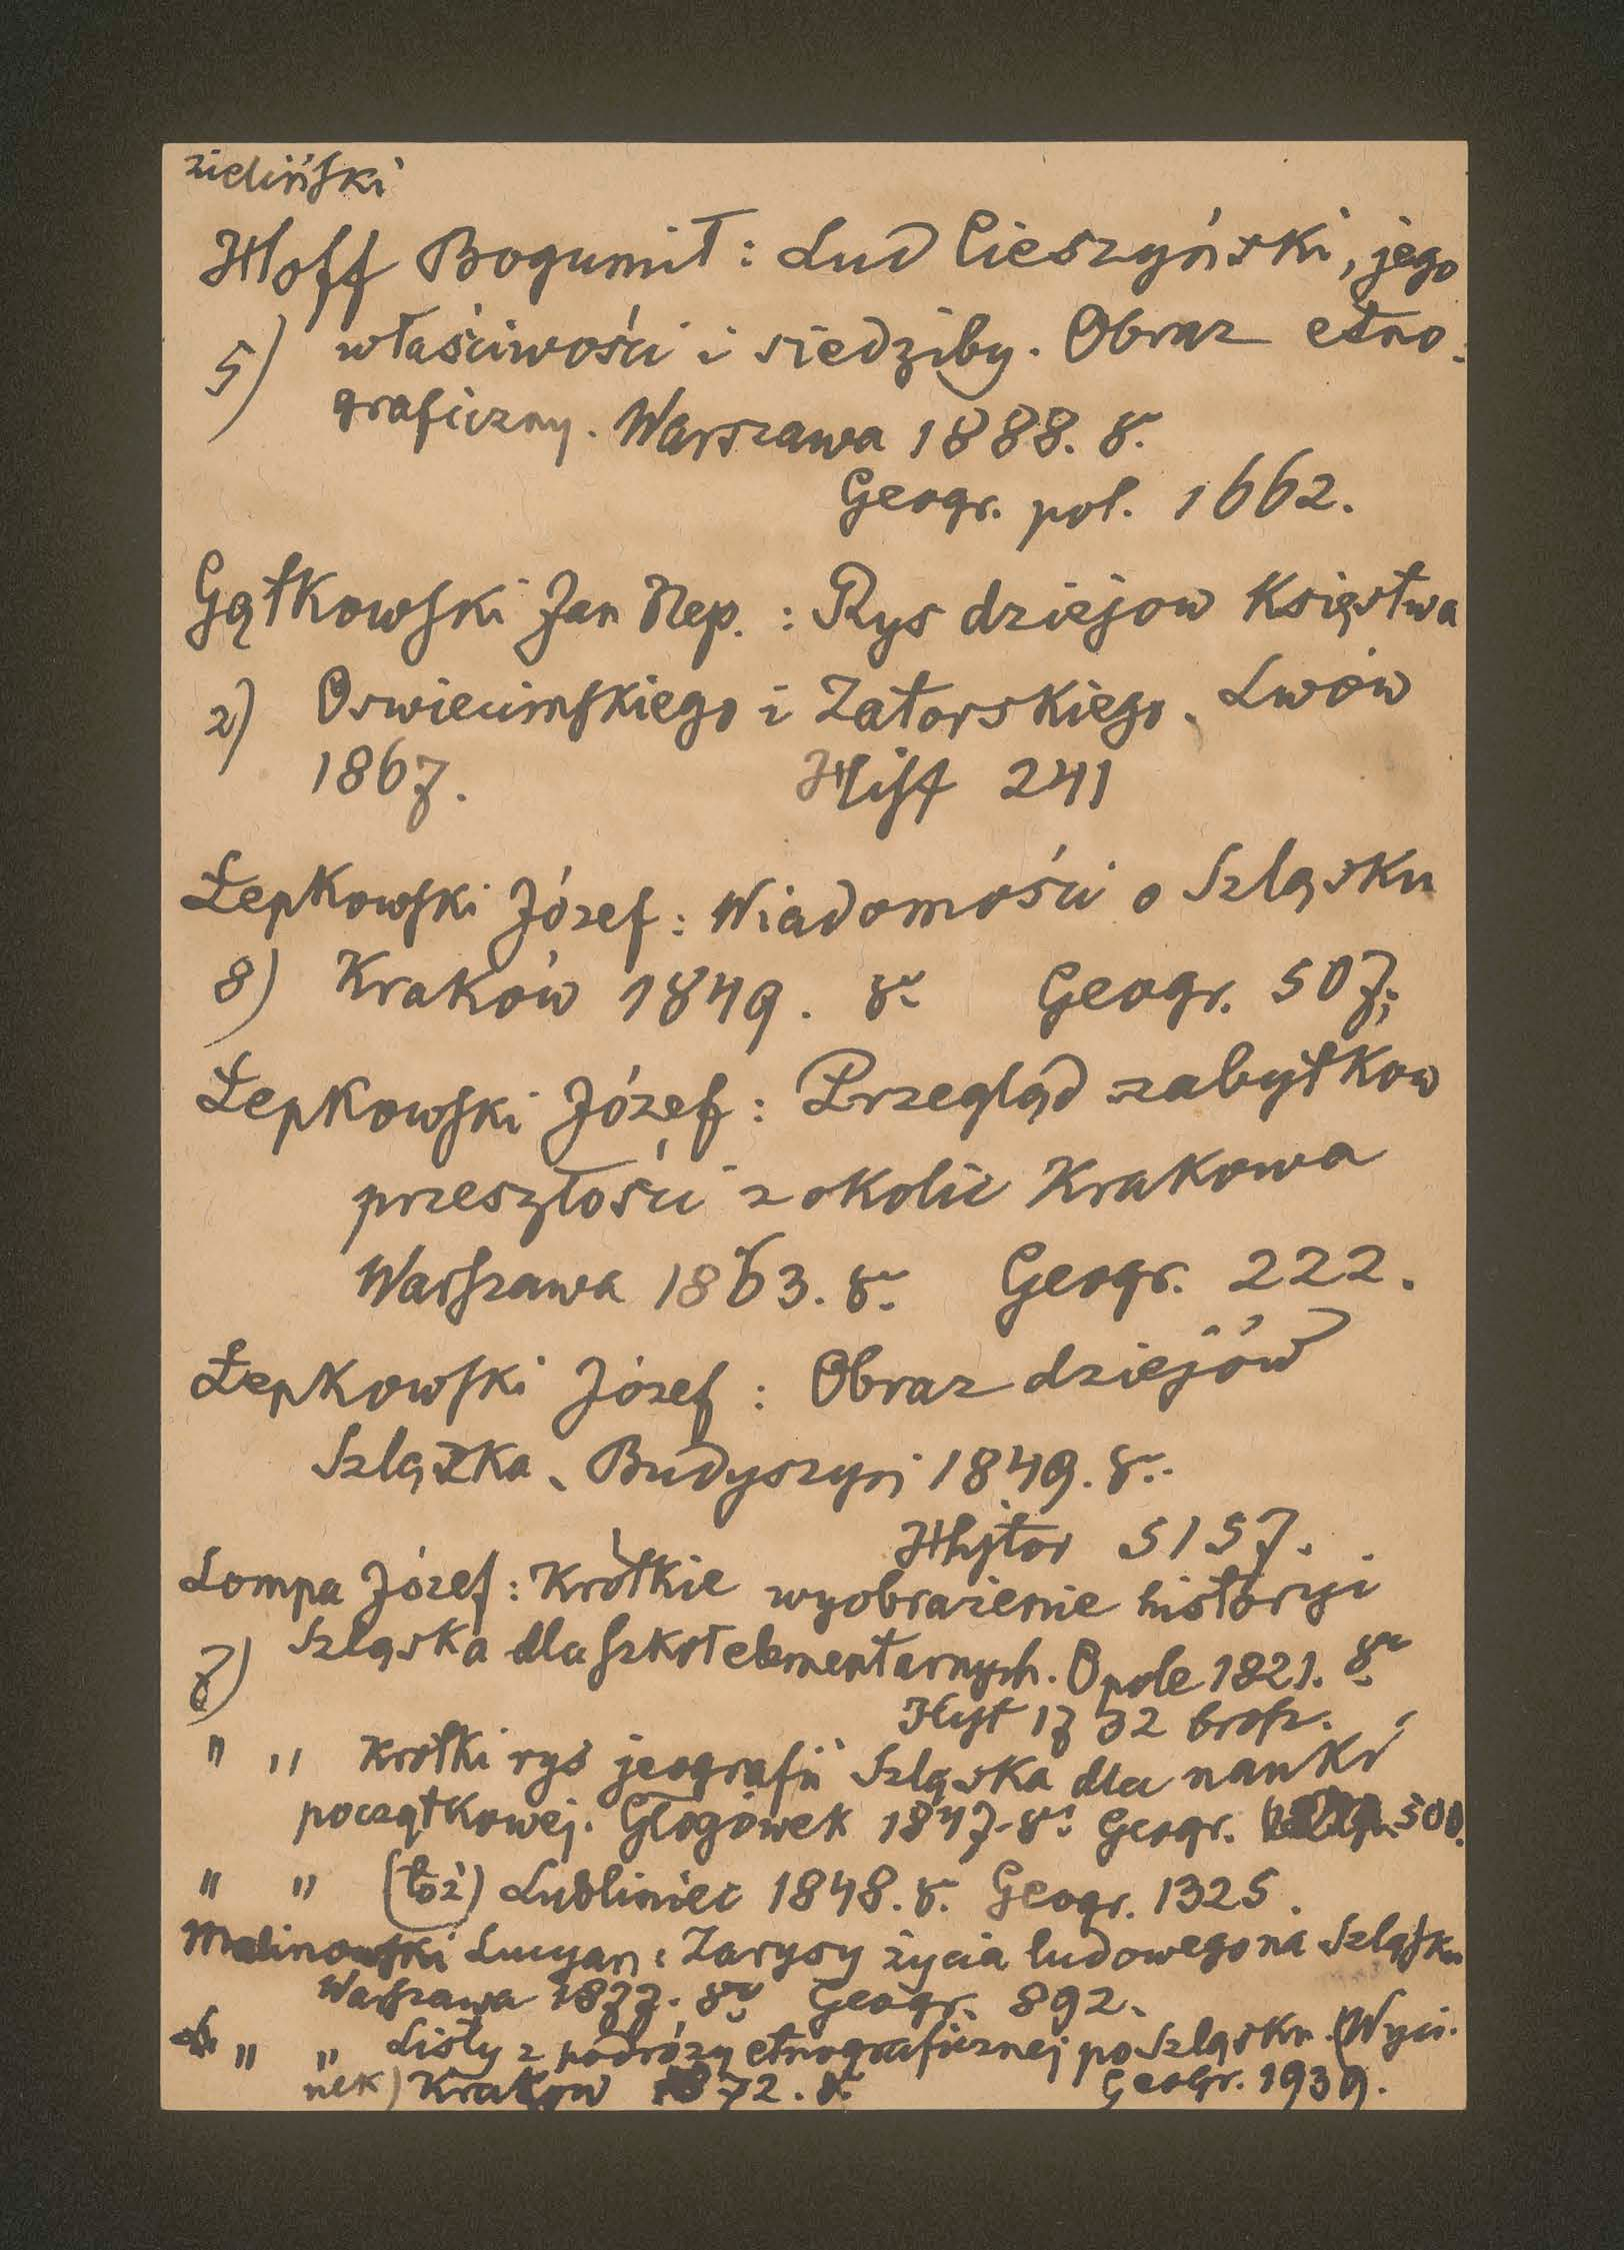 zieliński
Hoff Bogumił: Lud Cieszyński, jego
5) właściwości i siedziby. Obraz etno-
graficzny. Warszawa 1888. 8.
Geogr. pol. 1662.
Gątkowski Jan Nep.: Rys dziejow Księstwa
2) Oswiecimskiego i Zatorskiego. Lwów
1867. Hist 241
Łepkowski Józef: Wiadomości o Szląsku
8) Kraków 1849. 8º Geogr. 507;
Łepkowski Józef: Przegląd zabytkow
przeszłości z okolic Krakowa
Warszawa 1863. 8º Geogr. 222.
Łepkowski Józef: Obraz dziejów
Szlązka. Budyszyn 1849. 8º.
5157.
Lompa Józef: Krótkie wyobrażenie historyi
7) Szląska dla szkół elementarnych. Opole 1821. 8º
1732 brosz.
" " Krótki rys jeografii Szląska dla nauki
początkowej. Głogówek 1847. 8º Geogr. 500.
" " (toż) Lubliniec 1848. 8. Geogr. 1325.
Malinowski Lucyan: Zarysy życia ludowego na Szląsku
Warszawa 1877. 8º Geogr. 892.
" " Listy z podróży etnograficznej po Szląsku. (Wyci-
nek) Krakow 1872. 8º Geogr. 1939.